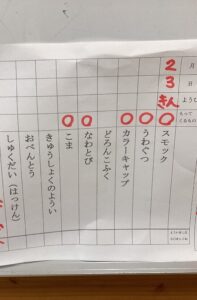 2 月
3 日
きん ようび
もってくるもの
○ スモック
○ うわぐつ
○ カラーキャップ
どろんこふく
○ なわとび
○ こま
きゅうしょくのようい
おべんとう
しゅくだい(はっけん)